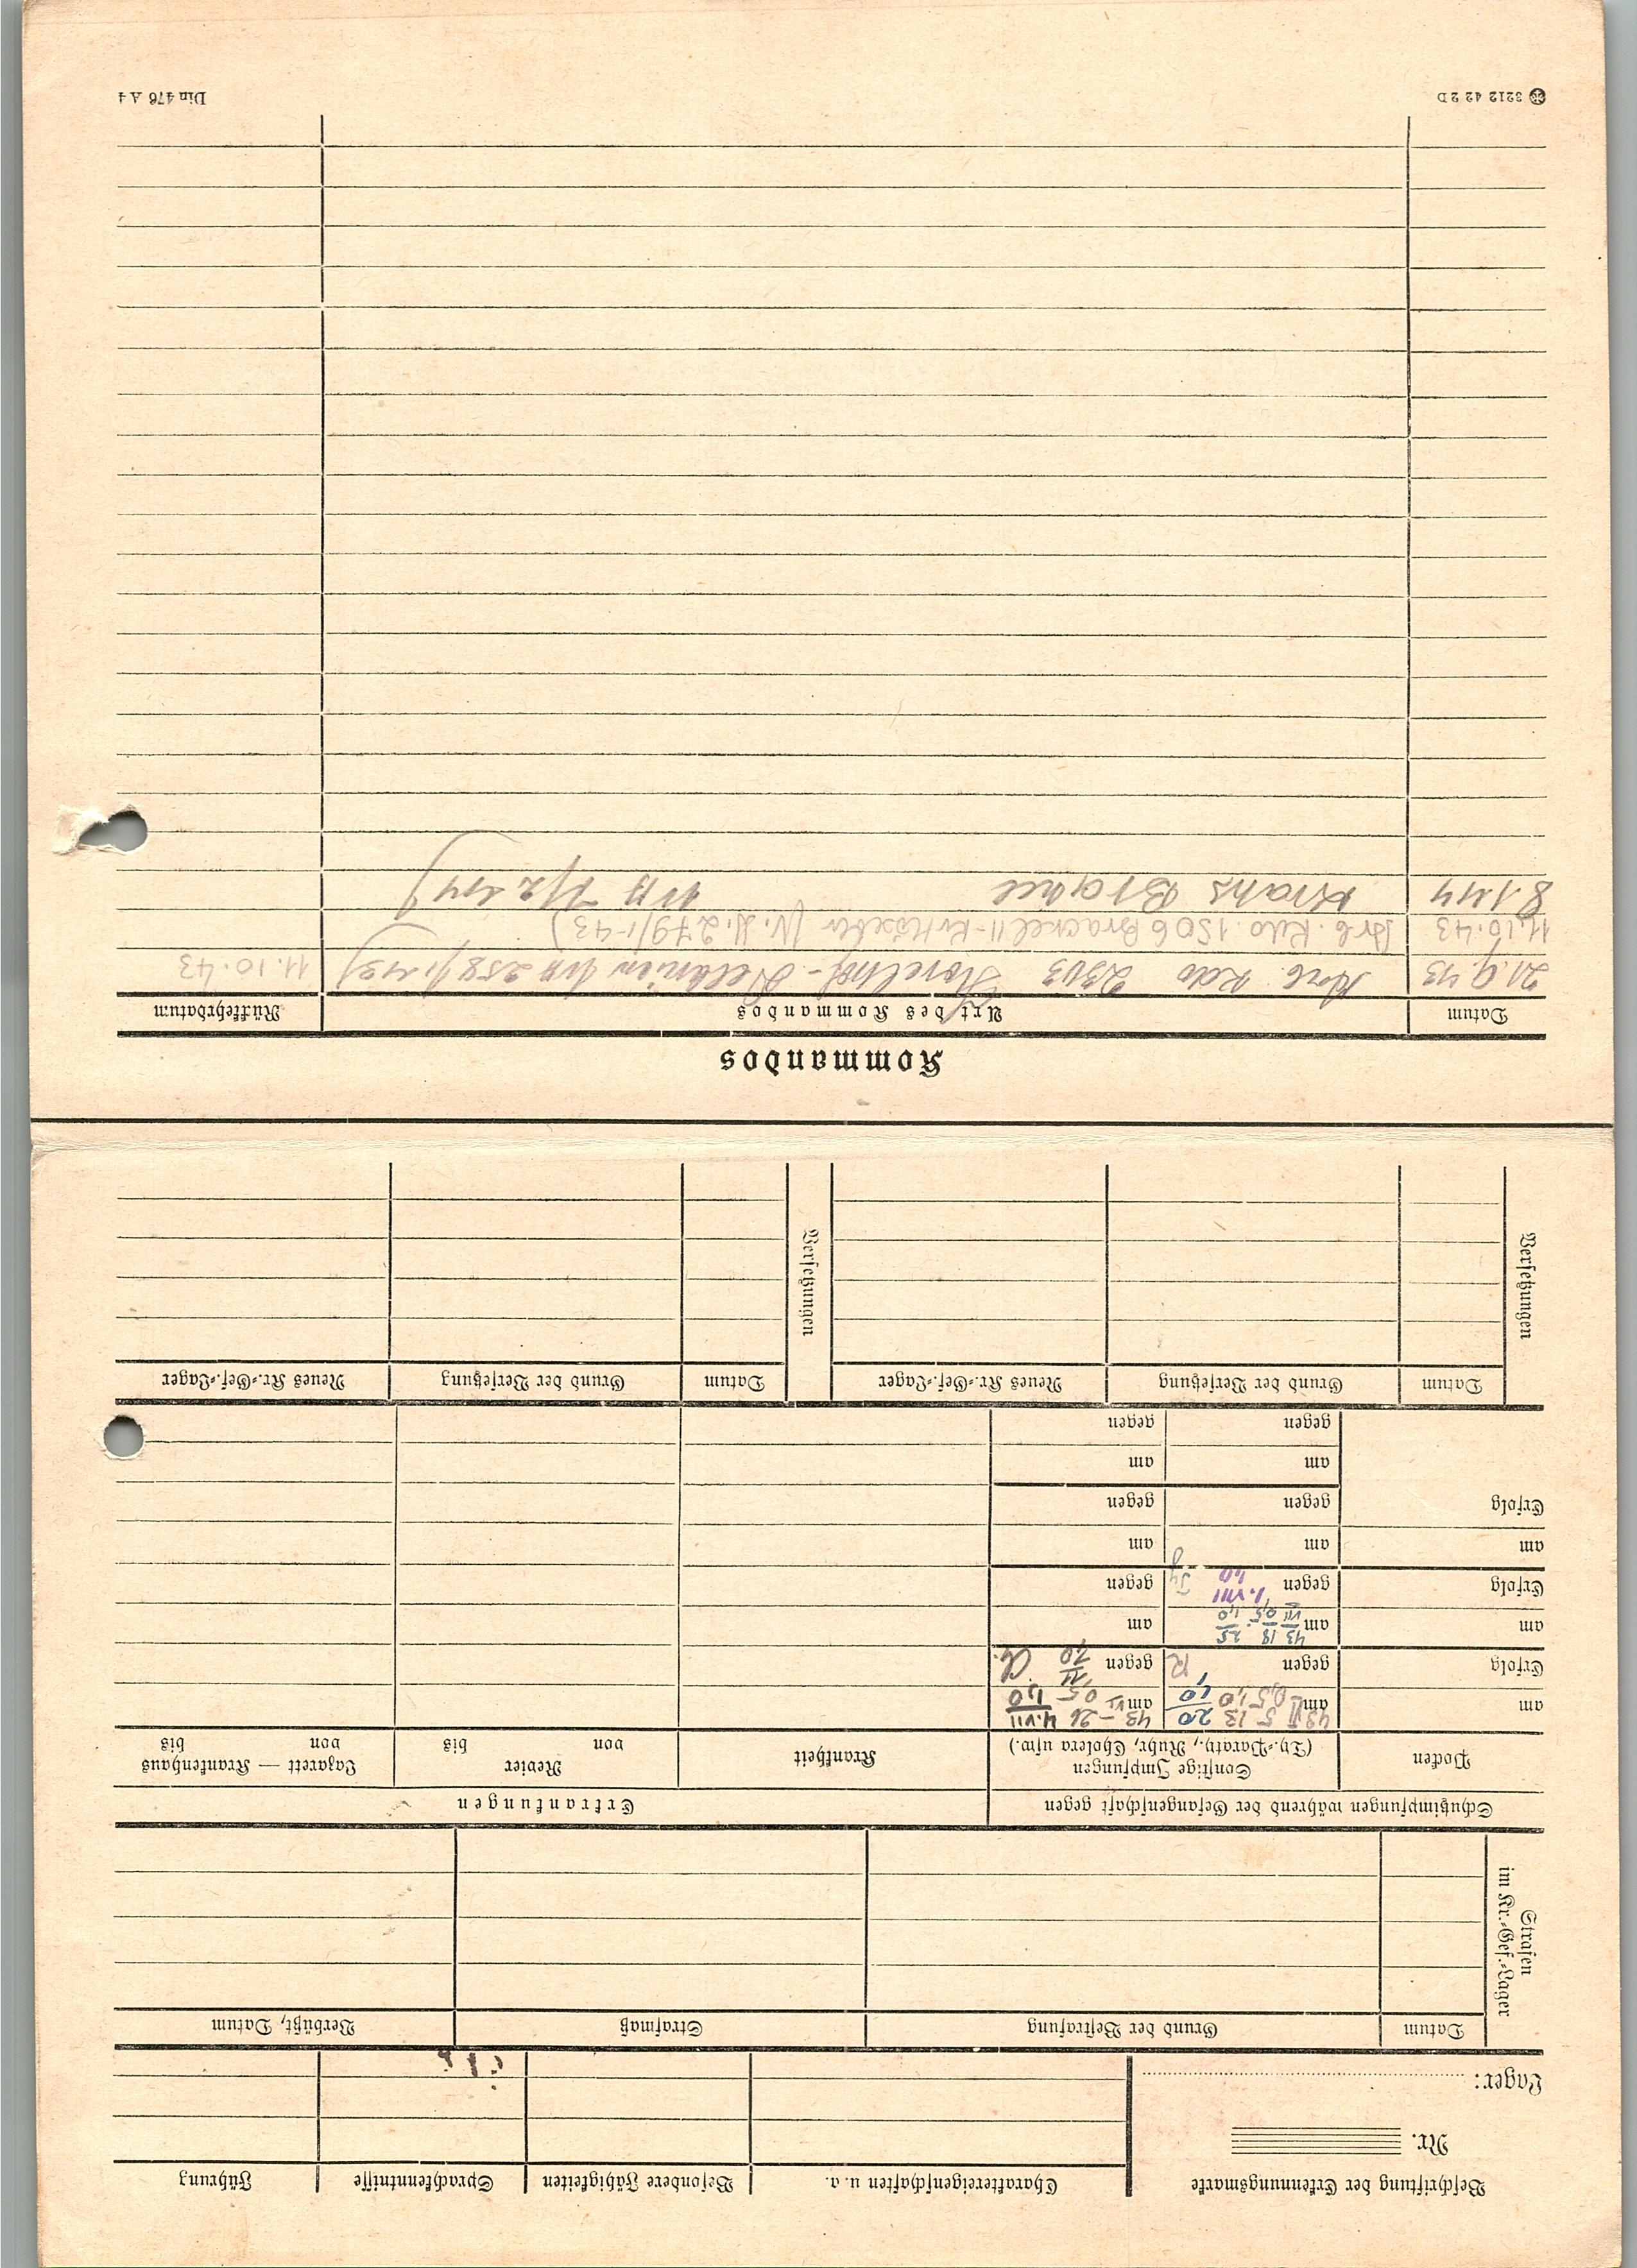 Beschriftung der Erkennungsmarke
Nr.
Lager:
Charaktereigenschaften u. a.
Besondere Fähigkeiten
Sprachkenntnisse
Führung
Strafen
im Kr.-Gef.-Lager
Datum
Grund der Bestrafung
Strafmaß
Verbüßt, Datum
Schutzimpfungen während der Gefangenschaft gegen
Erkrankungen
Pocken
Sonstige Impfungen
(Ty.-Paraty., Ruhr, Cholera usw.)
Krankheit
Revier
von bis
Lazarett — Krankenhaus
von bis
am
am 43 VI 5 13 20
0,5 1,0 1,0
am 43 VI 26 4.VII
0,5 1,0
Erfolg
gegen R
gegen
am
am 43 18 25
VII 0,5 1,0
am
Erfolg
gegen 1.VIII
1,0
gegen
am
am
am
Erfolg
gegen
gegen
am
am
gegen
gegen
Versetzungen
Datum
Grund der Versetzung
Neues Kr.-Gef.-Lager
Versetzungen
Datum
Grund der Versetzung
Neues Kr.-Gef.-Lager
Kommandos
Datum
Art des Kommandos
Rückkehrdatum
21.9.43 Arb. Kdo 2303 258/1.43) 11.10.43
11.10.43 Arb. Kdo. 1506 Brackel II (V. M. 279/1-43)
8.1.44 1/2 44)
3212 42 2 D
Din 476 A 4